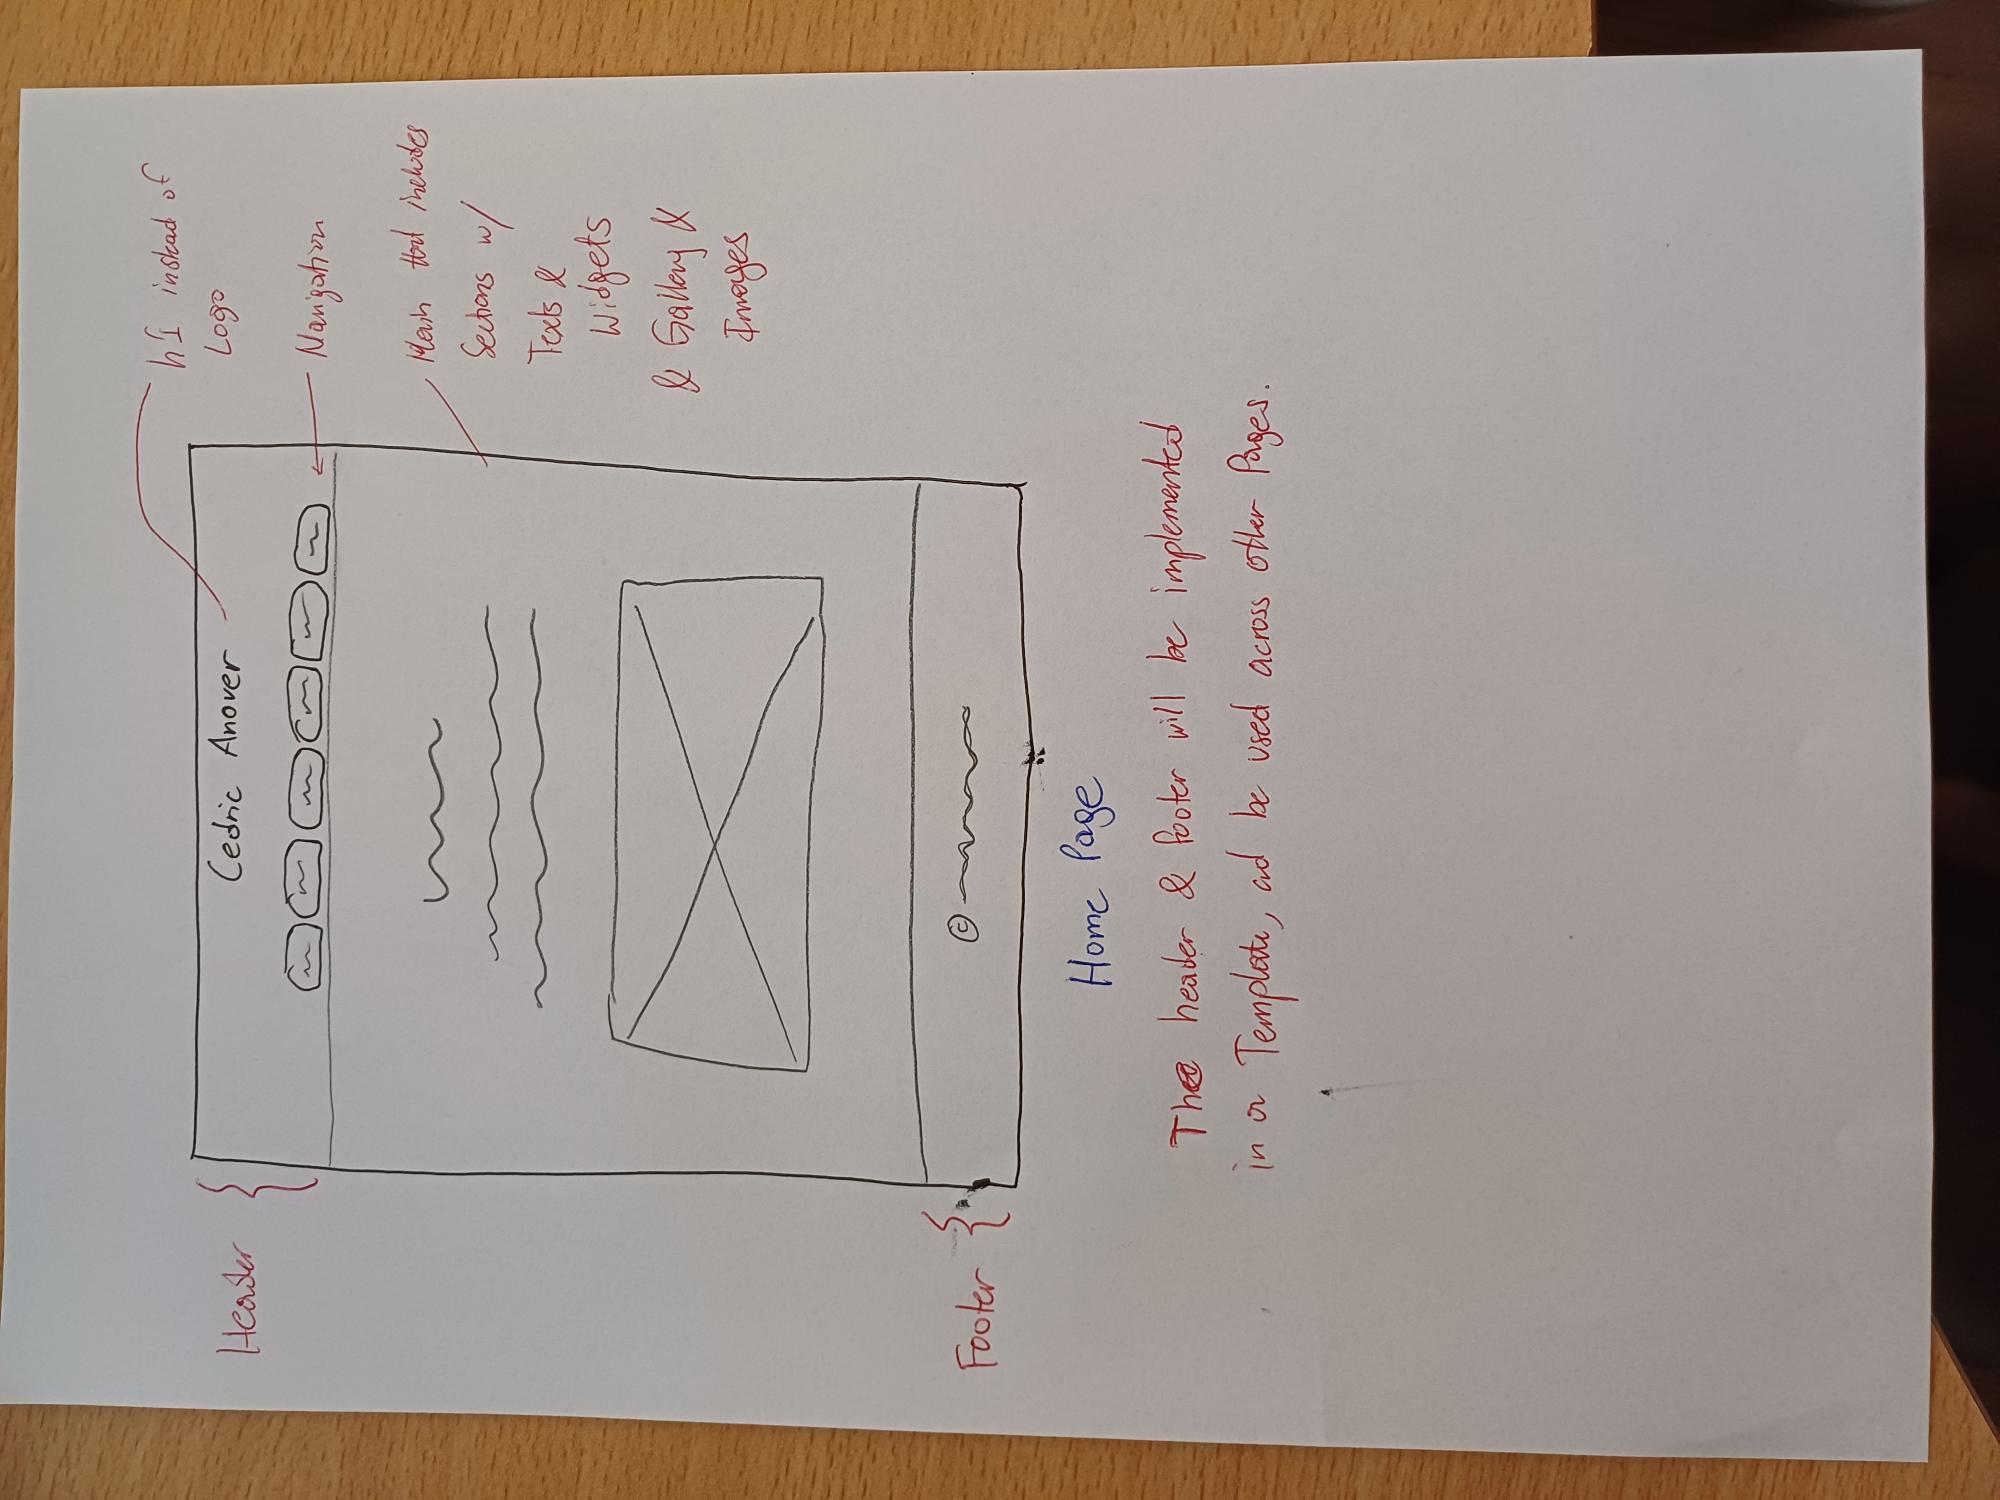 h1 instead of
Logo
Header
Cedric Anover
Navigation
Main that includes
Sections w/
Texts &
Widgets
& Gallery &
Images
Footer
©
Home Page
The header & footer will be implemented
in a Template, ad be used across other Pages.